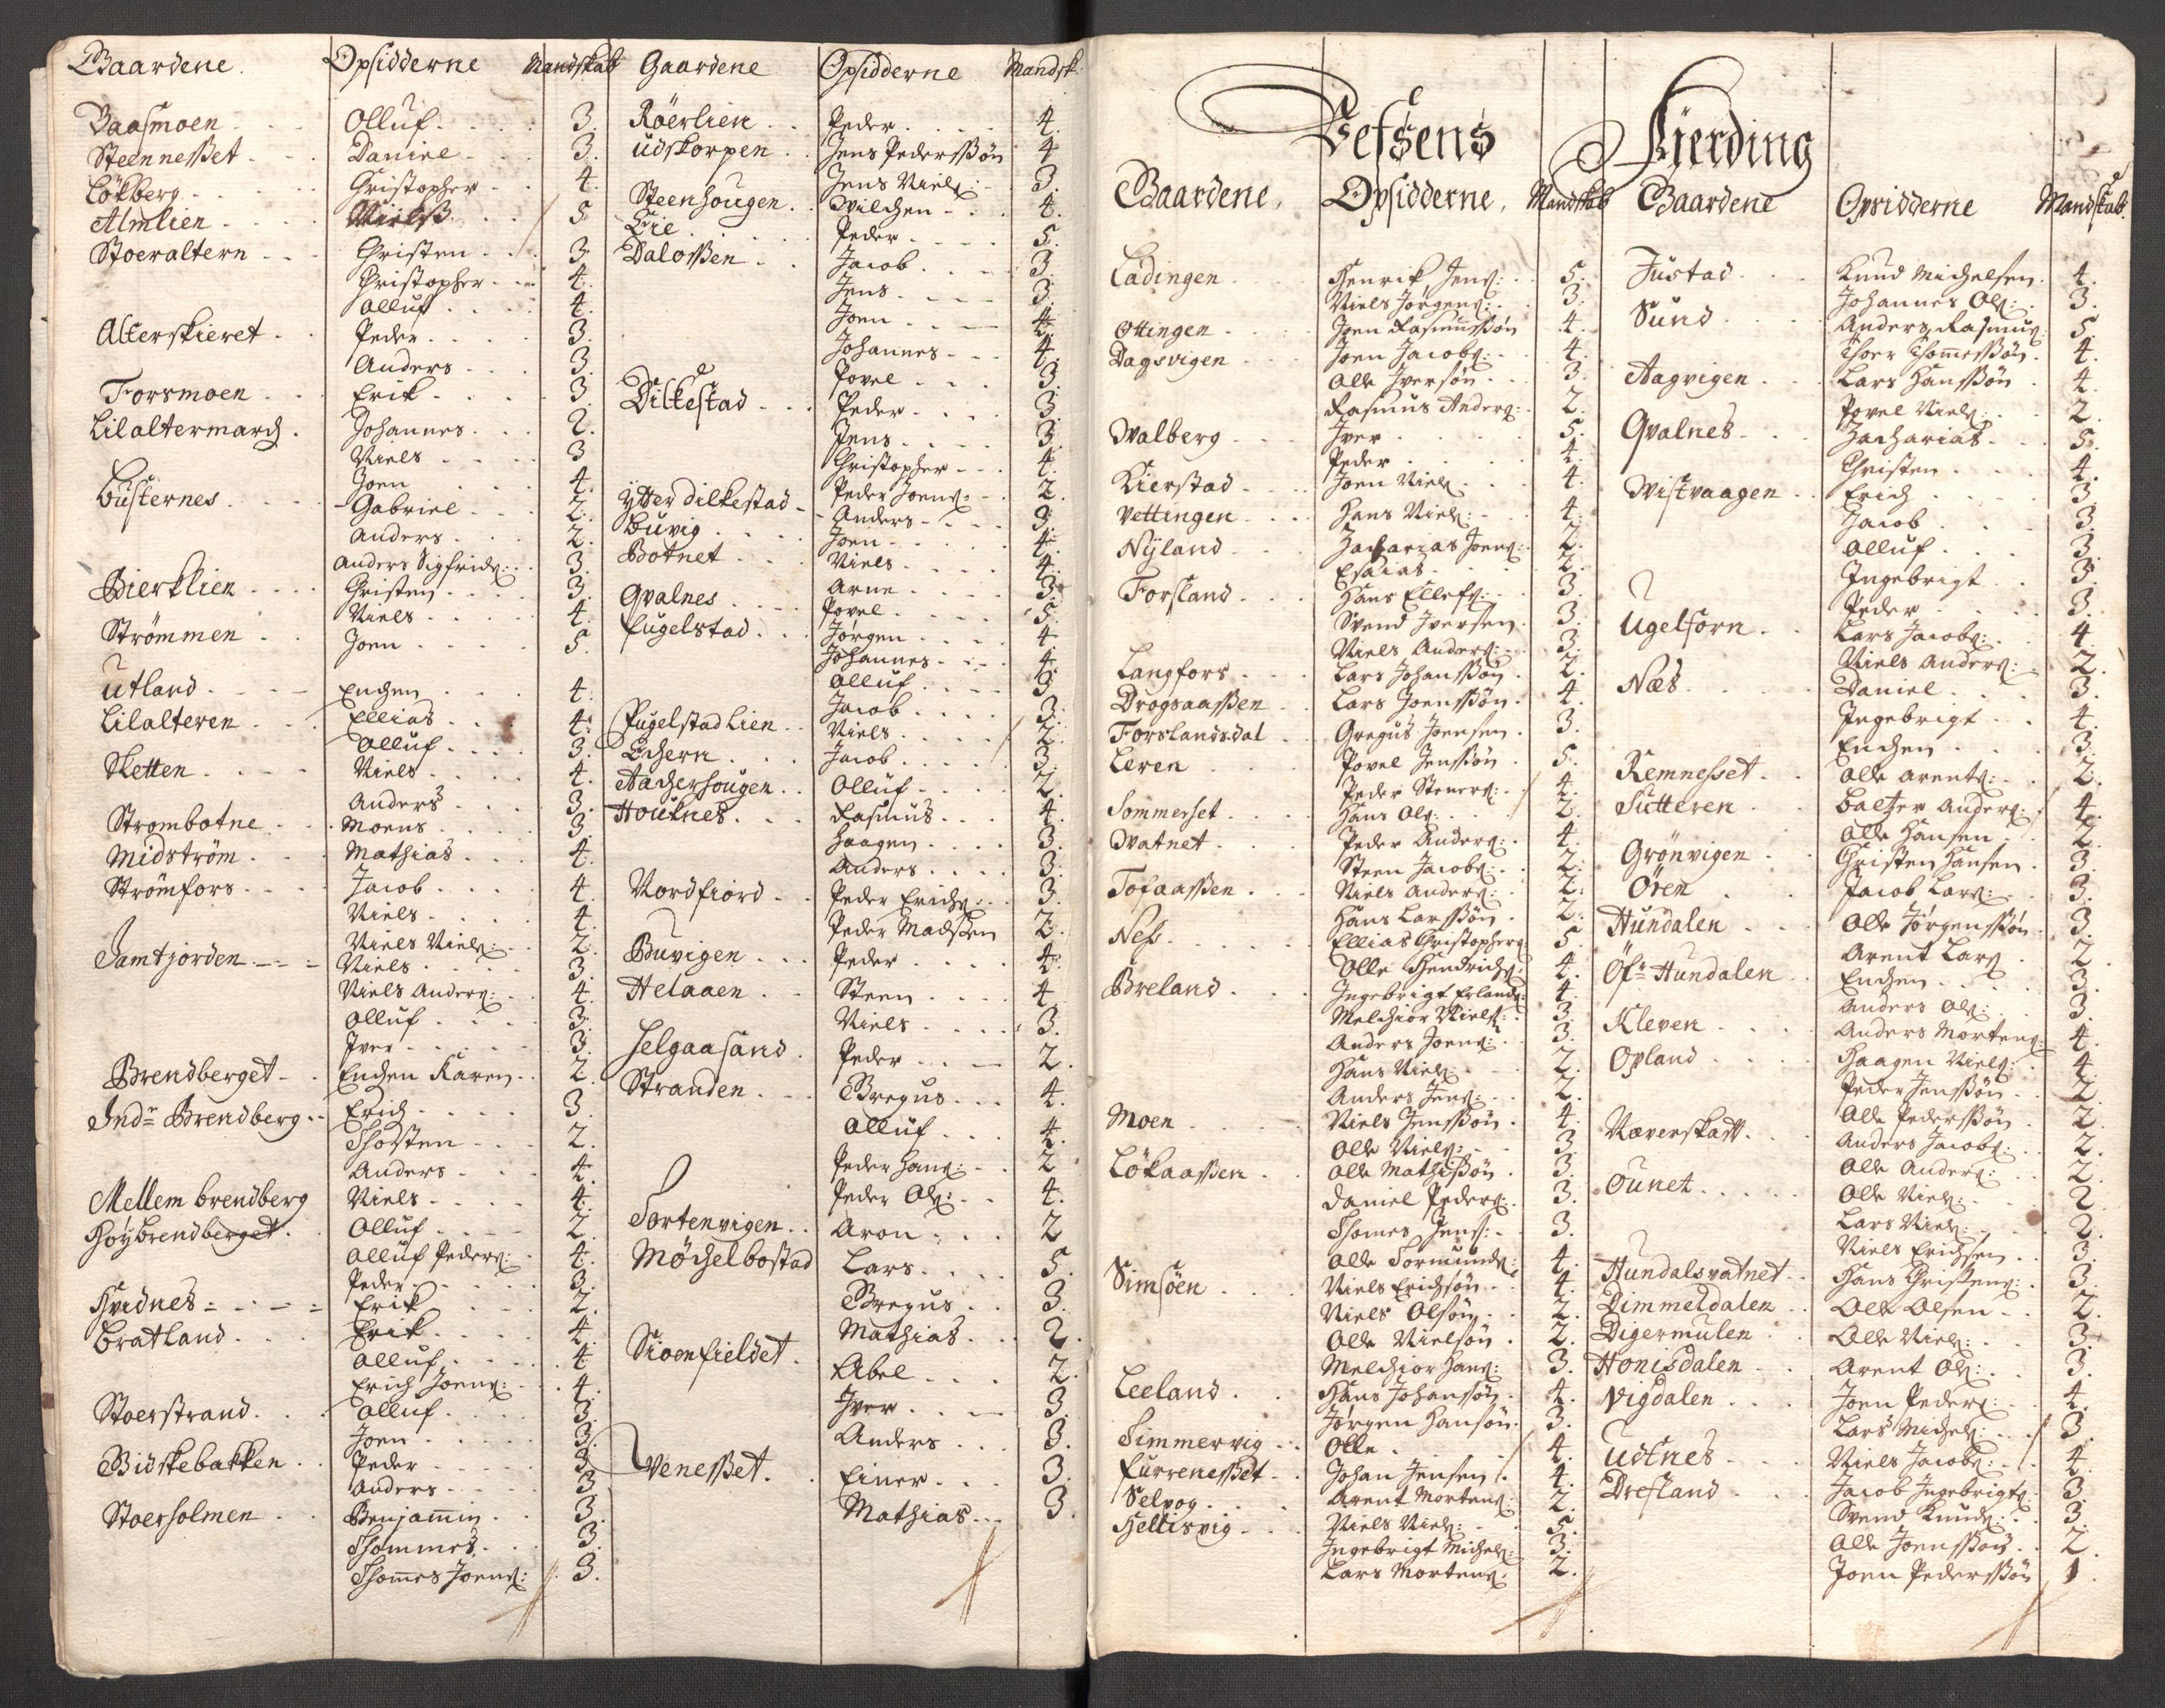 Gaardene. Opsidderne Mandskab
Baasmoen Olluf 3.
Steennesset Daniel 3.
Lökberg Christopher 4.
Almlien Nielß 5
Stoeraltern Christen 3.
Christopher 4.
Olluf 4.
Alterskieret Peder 3.
Anders 3.
Forsmoen Erik 3.
Lilaltermarch Johannes 2.
Niels 3
Joen 4.
Büsternes Gabriel 2.
Anders 2.
Anders Sigfrids: 3.
Bierklien Christen 3.
Niels 4.
Strömmen Joen 5.
Utland Enchen 4.
Lilalteren Ellias 4.
Olluf 3.
Sletten Niels 4.
Anders 3.
Strombotne Moens 3.
Midström Mathias 4.
Strömfors Jacob 4.
Niels 4.
Niels Niels: 2.
Jamtjorden Niels 3.
Niels Anders: 4.
Olluf 3.
Iver 3.
Brendberget Enchen Karen 2.
Indr Brendberg Erich 3.
Thosten 2.
Anders 4.
Mellem brendberg Niels 4.
Höybrendberget Olluf 2.
Olluf Peders: 4.
Peder 3.
Hvidnes Erik 2.
Bratland Erik 4.
Olluf 4
Erich Joens: 4.
Stoerstrand Olluf 3.
Joen 3.
Bidskebakken Peder 3.
Anders 3
Stoerholmen Benjamin 3.
Thommes 3.
Thomes Joens: 3.
Gaardene Opsidderne Mandsk:
Röerlien Peder 4.
Udskorpen Jens Pederssön 4
Jens Niels: 3.
Steenhougen Wilchen 4.
Lie Peder 5.
Dalossen Jacob 3.
Jens 3.
Joen 4.
Johannes 4.
Povel 3.
Dilkestad Peder 3.
Jens 3.
Christopher 4.
Ytter dilkestad Peder Joens: 2.
Anders 3.
Buvig Joen 4.
Botnet Niels 4.
Arne 3.
Qvalnes Povel 5.
Fugelstad Jörgen 4
Johannes 4.
Olluf 3
Jacob 3.
Fugelstad Lien Niels 2.
Echern Jacob 3.
Aacherhougen Olluf 2.
Houknes Rasmus 4.
Haagen 3.
Anders 3.
Nordfiord Peder Erichs: 3.
Peder Madssen 2.
Buvigen Peder 4.
Helaaen Steen 4
Niels 3.
Helgaasand Peder 2.
Stranden Gregus 4.
Olluf 4.
Peder Hans: 2
Peder Ols: 4.
Sortenvigen Aron 2
Möchelbostad Lars 5.
Gregus 3.
Mathias 2.
Sioenfieldet Abel 2.
Iver 3.
Anders 3.
Venesset Einer 3.
Mathias 3.
Vefsens Fjerding
Gaardene, Opsidderne, Mandskab
Ladingen Henrik Jens: 5.
Niels Jörgens: 3.
Ottingen Joen Rasmussön 4.
Dagsvigen Joen Jacobs: 4.
Olle Iversön 3.
Rasmus Anders: 2.
Walberg Iver 5.
Peder 4.
Kierstad Joen Niels: 4.
Vettingen Hans Niels: 4.
Nyland Zacharias Joens: 2.
Esaias 2.
Forsland Hans Ellefs: 3.
Svend Iversen 3.
Niels Anders: 3.
Langfors Lars Johanssön 2.
Drogsaassen Lars Joenssön 4.
Forslandsdal Gregus Joensen 3.
Leren Povel Jenssön 5.
Peder Steners: 4.
Sommerset Hans Ols: 2.
Watnet Peder Anders: 4.
Steen Jacobs: 2.
Tofaassen Niels Anders: 2.
Hans Larssön 2.
Nes Ellias Christophers: 5.
Olle Hendrichs: 4.
Breland Ingebrigt Erlands: 4.
Melchior Niels: 3.
Anders Joens: 3.
Hans Niels: 2.
Anders Jens: 2.
Moen Niels Jenssön 4.
Olle Niels: 3.
Lökaassen Olle Mathissön 3.
Daniel Peders: 3.
Thomes Jens: 3.
Olle Tormunds: 4.
Simsöen Niels Erichsön 4.
Niels Olsön 2.
Olle Nielsön 2.
Melchior Hans: 3.
Leeland Hans Johansön 4.
Jörgen Hansön 3.
Simmervig Olle 4.
Furrenesset Johan Jensen 4.
Selvog Arent Mortens: 2.
Hellisvig Niels Niels: 5.
Ingebrigt Michels: 3.
Lars Mortens: 2.
Gaardene Opsidderne Mandskab.
Justad Knud Michelsen 4.
Johannes Ols: 3.
Sund Anders Rasmus: 5
Thoer Thomessön 4.
Aagvigen Lars Hanssön 4.
Povel Niels: 2.
Qvalnes Zacharias 5.
Christen 4.
Wistvaagen Erich 3.
Jacob 3.
Olluf 3.
Ingebrigt 3.
Peder 3.
Ugelforn Lars Jacobs: 4.
Niels Anders: 2.
Næs Daniel 3.
Ingebrigt 4.
Enchen 3.
Remnesset Olle Arents: 2.
Sutteren Baltzer Anders: 4.
Olle Hansen 2.
Grönvigen Christen Hansen 3.
Ören Jacob Lars: 3.
Hundalen Olle Jörgenssön 3.
Arent Lars: 2.
Öfr Hundalen Enchen 3.
Anders Ols: 3.
Kleven Anders Mortens: 4.
Opland Haagen Niels: 4.
Peder Jenssön 2.
Olle Pederssön 2.
Ræverskatt Anders Jacobs: 2.
Olle Anders: 2.
Ounet Olle Niels: 2
Lars Niels: 2.
Niels Erichsen 3.
Hundalsvatnet Hans Christens: 3.
Dimmeldalen Olle Olsen 2.
Digermulen Olle Niels: 3.
Honisdalen Arent Ols: 3.
Vigdalen Joen Peders: 4.
Lars Michels: 3.
Udtnes Niels Jacobs: 4.
Drefland Jacob Ingebrigts: 3
Svend Knuds: 3.
Olle Joenssön 2.
Joen Pederssön 1.